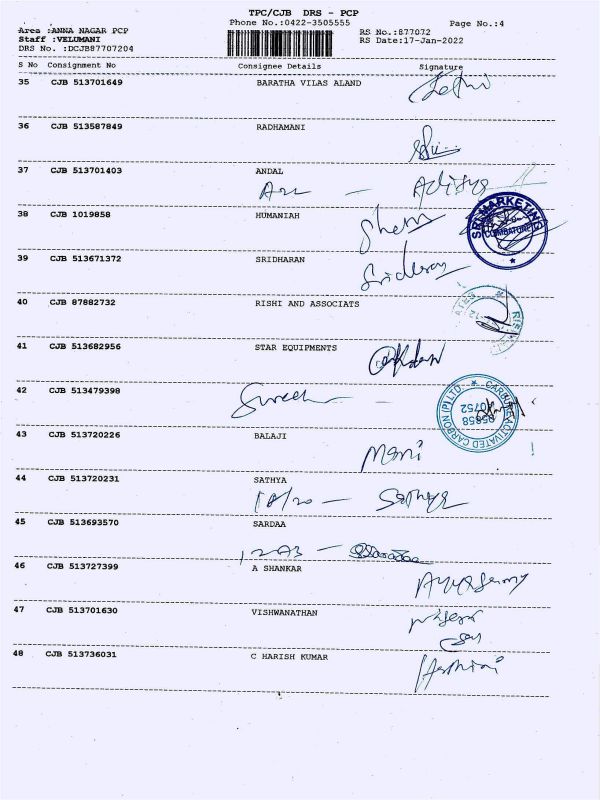 TPC/CJB DRS - PCP
Phone No.:0422-3505555 Page No.:4
Area :ANNA NAGAR PCP RS No.:877072
Staff :VELUMANI RS Date:17-Jan-2022
DRS No. :DCJB87707204
S No Consignment No Consignee Details Signature
35 CJB 513701649 BARATHA VILAS ALAND
36 CJB 513587849 RADHAMANI
37 CJB 513701403 ANDAL
Aditya
38 CJB 1019858 HUMANIAH
SRI MARKETING
COIMBATORE
39 CJB 513671372 SRIDHARAN
Sridharan
40 CJB 87882732 RISHI AND ASSOCIATS
41 CJB 513682956 STAR EQUIPMENTS
42 CJB 513479398
Suresh
43 CJB 513720226 BALAJI
Mani
44 CJB 513720231 SATHYA
18/20 - Sathya
45 CJB 513693570 SARDAA
46 CJB 513727399 A SHANKAR
47 CJB 513701630 VISHWANATHAN
48 CJB 513736031 C HARISH KUMAR